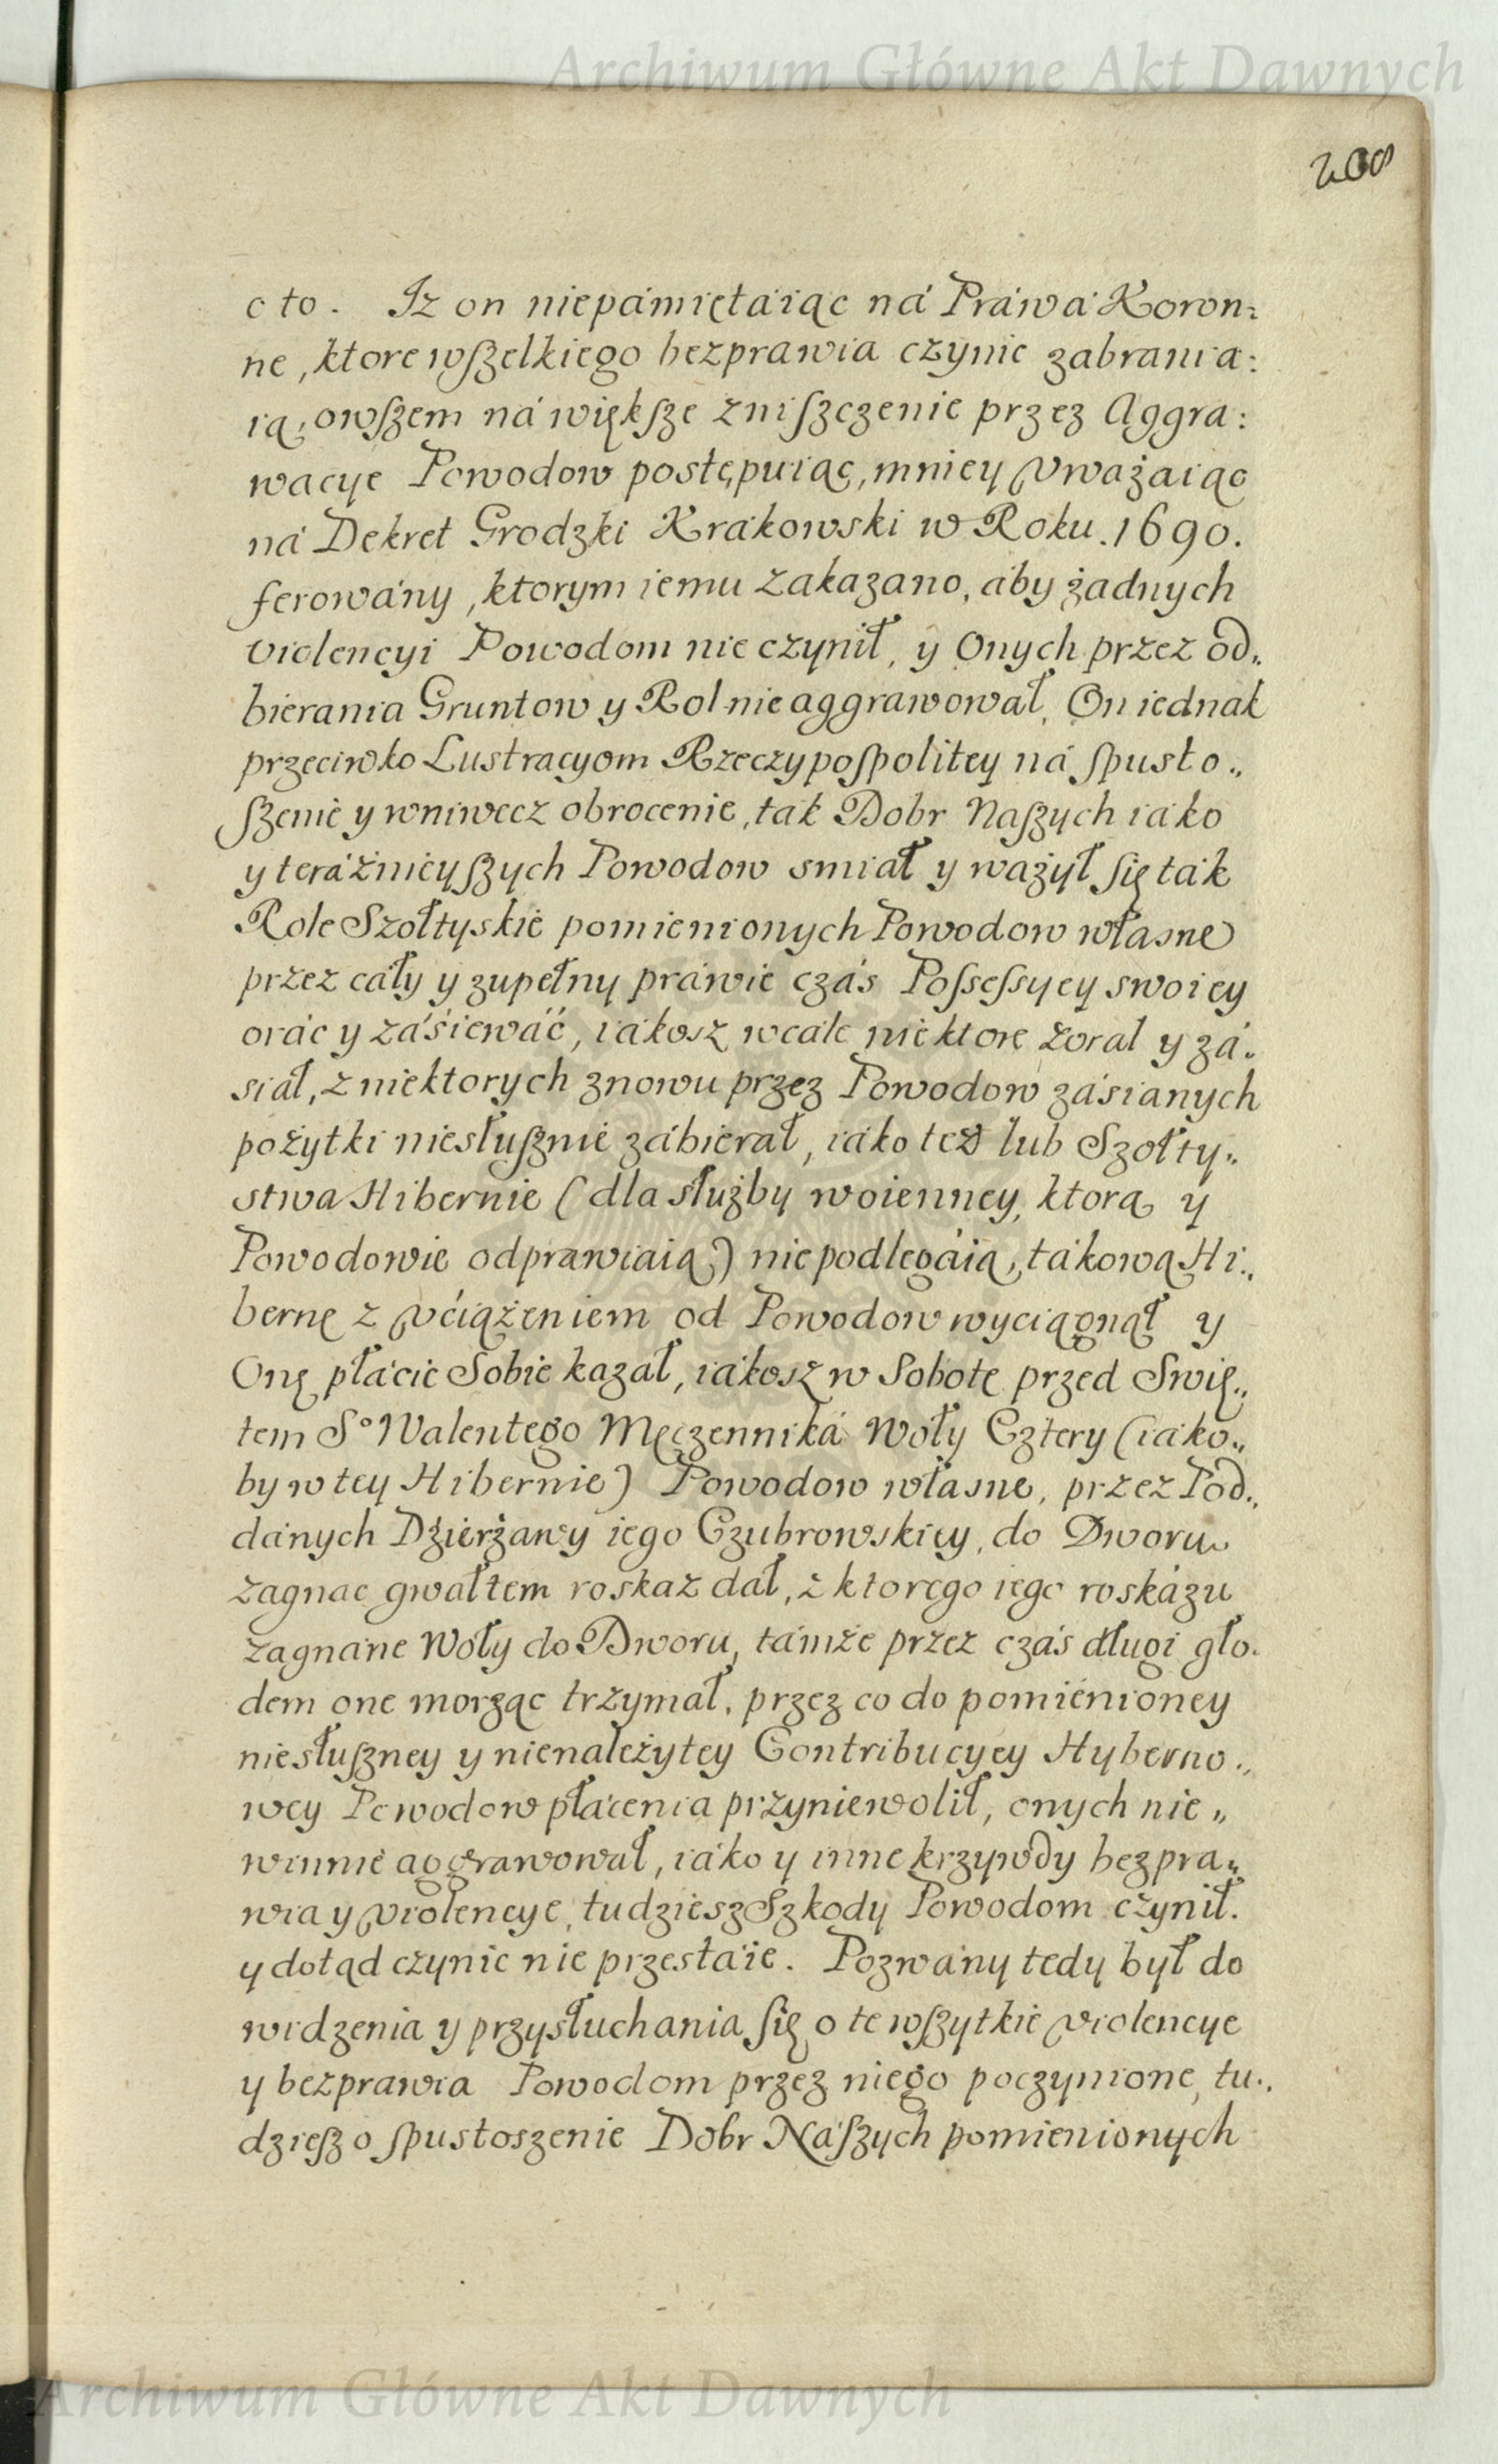 Archiwum Główne Akt Dawnych
208
o to. Iż on niepámiętáiąc ná Práwá Koron:
ne, ktore wſzelkiego bezprawia czynic zabrania:
ią, owſzem ná więkſze zniſzczenie przez Aggra:
wacye Powodow postępuiąc, mniey vważaiąc
ná Dekret Grodzki Krákowski w Roku. 1690.
ferowány, ktorym iemu zakazano, áby żadnych
violencyi Powodom nie czynił, y Onych przez od„
bierania Gruntow y Rol nie aggrawował, On iednak
przeciwko Lustracyom Rzeczypoſpolitey ná ſpusto„
ſzenie y wniwecz obrocenie, tak Dobr Naſzych iáko
y teráżnieyſzych Powodow smiał y ważył ſię ták
Role Szołtyskie pomienionych Powodow własne
przez cáły y zupełny práwie czás Poſseſsyey swoiey
orác y záśiewáć, iákosz wcale niektore zoral y zá„
siał, z niektorych znowu przez Powodow zásianych
pożytki niesłuſznie zábierał, iáko też lub Szołty„
stwa Hibernie (dla służby woienney, ktorą y
Powodowie odprawiaią) nie podlegáią, tákową Hi„
bernę z vciążeniem od Powodow wyciągnął y
Onę płácic Sobie kazáł, iákosz w Sobotę przed Swię„
tem Sº Walentego Męczenniká Woły Cztery (iáko„
by w tey Hibernie) Powodow własne, przez Pod„
dánych Dzierżawy iego Czubrowskiey, do Dworu
zagnac gwałtem roskaz dał, z ktorego iego roskázu
zagnáne Woły do Dworu, támże przez czás długi gło„
dem one morząc trzymał, przez co do pomienioney
niesłuſzney y nienależytey Contribucyey Hyberno„
wey Powodow płácenia przyniewolił, onych nie„
winnie aggrawował, iáko y inne krzywdy bezpra„
wia y violencye, tudziesz Szkody Powodom czynił.
y dotąd czynic nie przestáie. Pozwány tedy był do
widzenia y przysłuchania ſię o te wſzytkie violencye
y bezprawia Powodom przez niego poczynione, tu„
dzieſz o ſpustoszenie Dobr Náſzych pomienionych
Archiwum Główne Akt Dawnych